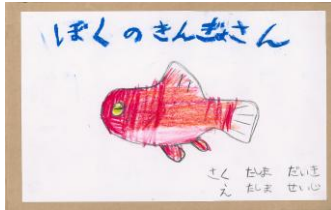 ぼくのきんぎょさん
さく たじま だいき
え たじま せい心